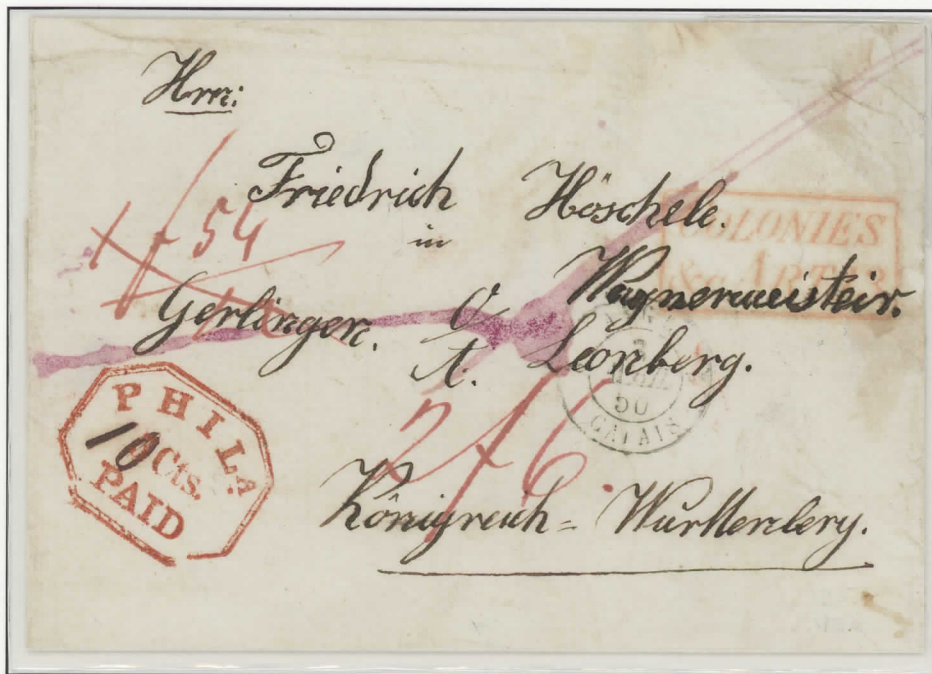 Hrn:
Friedrich Höschele.
in
Wagnermeister.
Gerlingen. O.
A. Leonberg.
Königreich = Württemberg.
1f 54
2f 6
COLONIES
&c. ART.
PHILA
10 Cts.
PAID
50
CALAIS